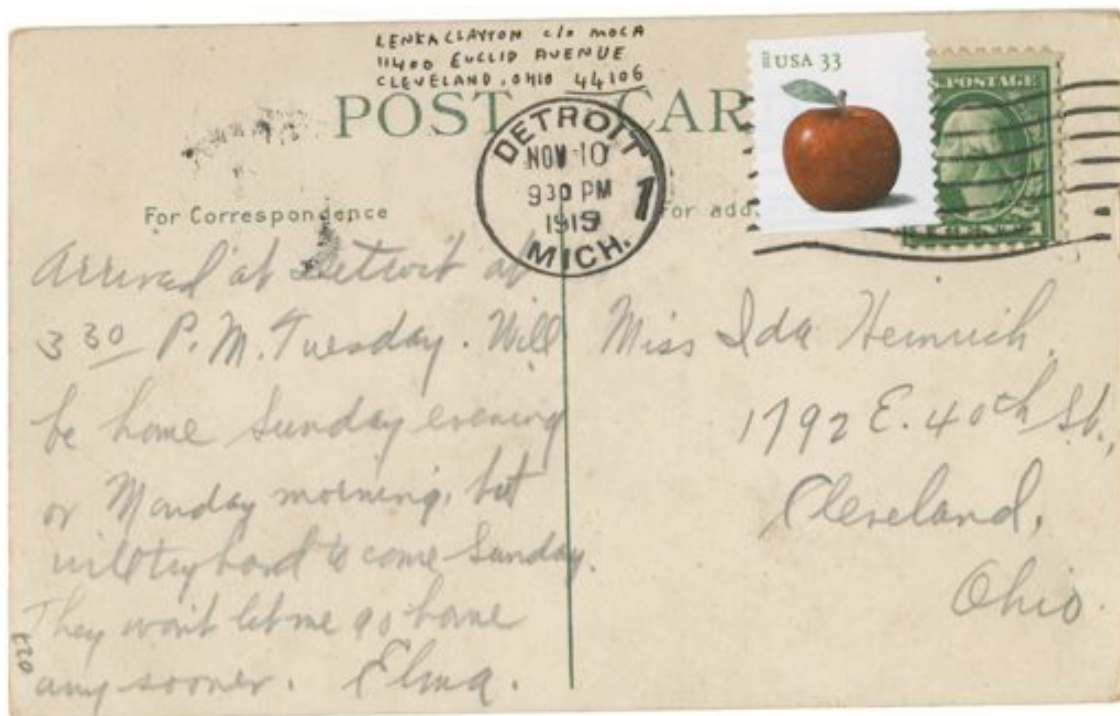 LENKA CLAYTON c/o MOCA
11400 EUCLID AVENUE
CLEVELAND, OHIO 44106
POST CAR
USA 33
POSTAGE
DETROIT
NOV 10
930 PM
1919
MICH.
1
For Correspondence
For add
Arrived at Detroit at
3 30 P.M. Tuesday. Will
be home Sunday evening
or Monday morning, but
will try hard to come Sunday.
They wont let me go home
any sooner. Elma.
Miss Ida Heinrich.
1792 E. 40th St.,
Cleveland,
Ohio.